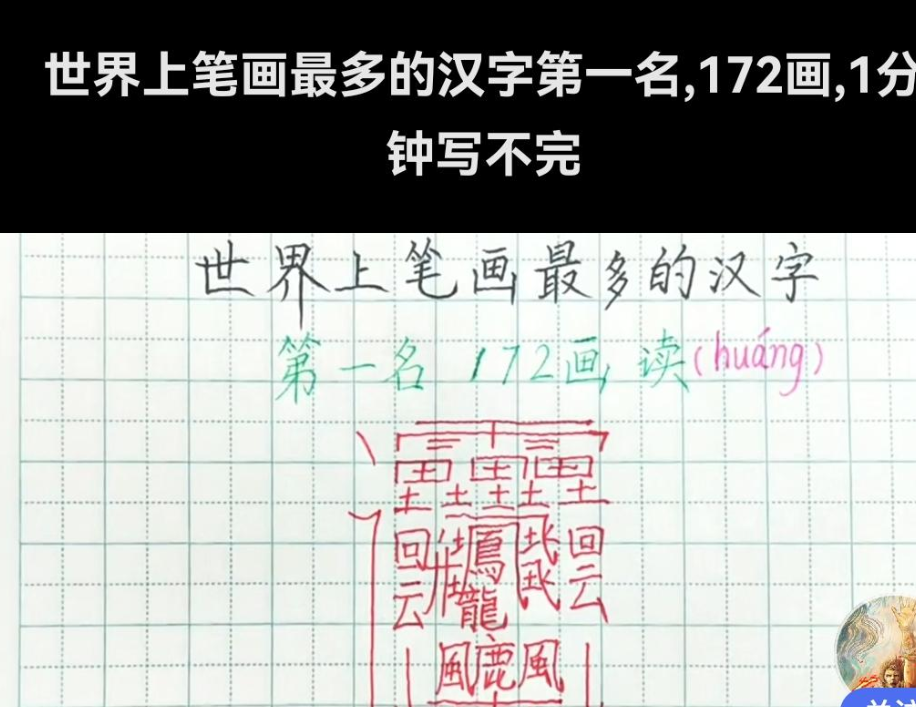 世界上笔画最多的汉字第一名,172画,1分
钟写不完
世界上笔画最多的汉字
第一名 172画 读(huáng)